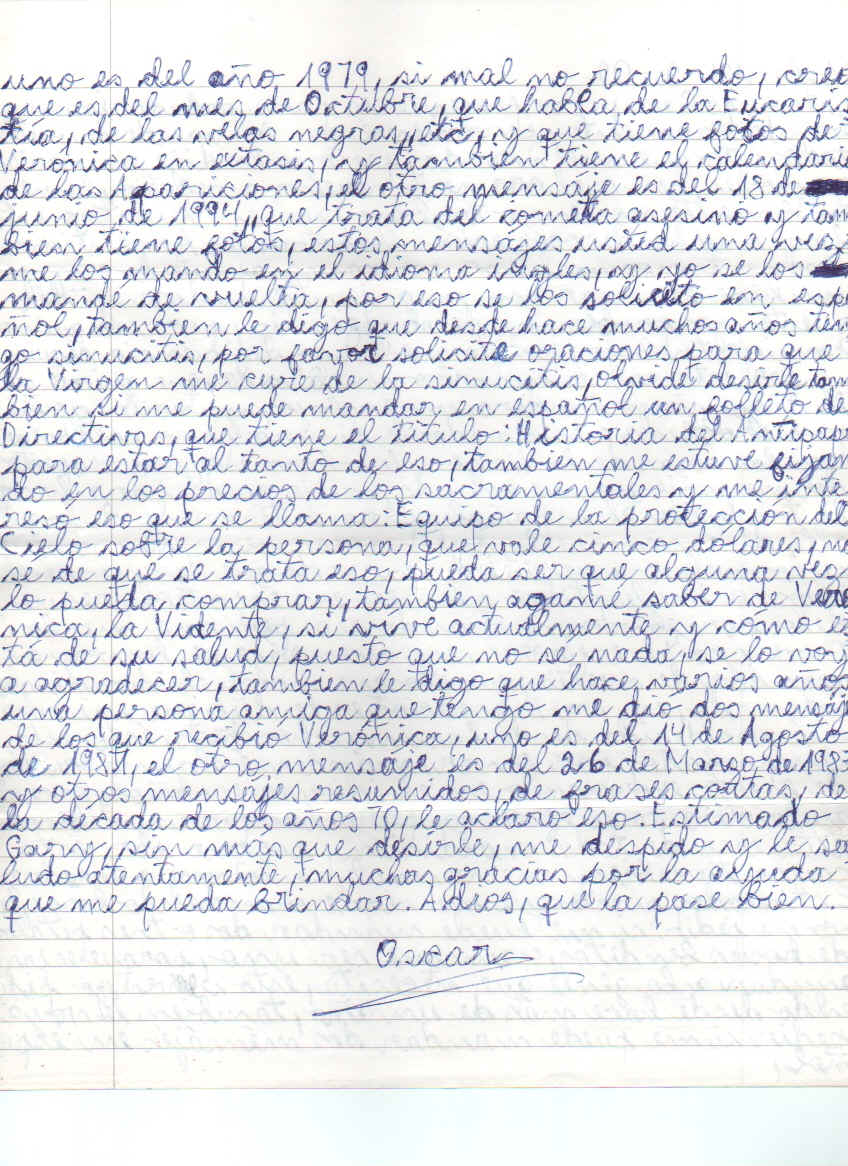 uno es del año 1979, si mal no recuerdo, creo
que es del mes de Octubre, que habla de la Eucaris
tia, de las velas negras, etc, y que tiene fotos de
Verónica en extasis, y tambien tiene el calendario
de las Apariciones, el otro mensaje es del 18 de
junio de 1994, que trata del cometa asesino y tam
bien tiene fotos, éstos mensájes usted una vez
me los mando en el idioma ingles, y yo se los
mandé de vuelta, por eso se los solicito en espa
ñol, tambien le digo que desde hace muchos años ten
go sinucitis, por favor solicite oraciones para que
la Virgen me cure de la sinucitis, olvidé desirle tam
bien si me puede mandar en español un folleto de
Directivas, que tiene el titulo: Historia del Antipapa
para estar al tanto de eso, tambien me estuve fijan
do en los precios de los sacramentales y me inte
resó eso que se llama: Equipo de la protección del
Cielo sobre la persona, que vale cinco dolares, no
se de qué se trata eso, pueda ser que alguna vez
lo pueda comprar, tambien agame saber de Veró
nica, la Vidente, si vive actualmente y cómo es
tá de su salud, puesto que no se nada, se lo voy
a agradecer, tambien le digo que hace varios años
una persona amiga que tengo me dió dos mensáj
de los que recibió Verónica, uno es del 14 de Agosto
de 1981, el otro mensaje es del 26 de Marzo de 1983
y otros mensájes resumidos, de frases cortas, de
la década de los años 70, le aclaro eso. Estimado
Gary, sin más que desirle, me despido y le sa
ludo atentamente, muchas gracias por la ayuda
que me pueda brindar. Adios, que la pase bien.
Oscar